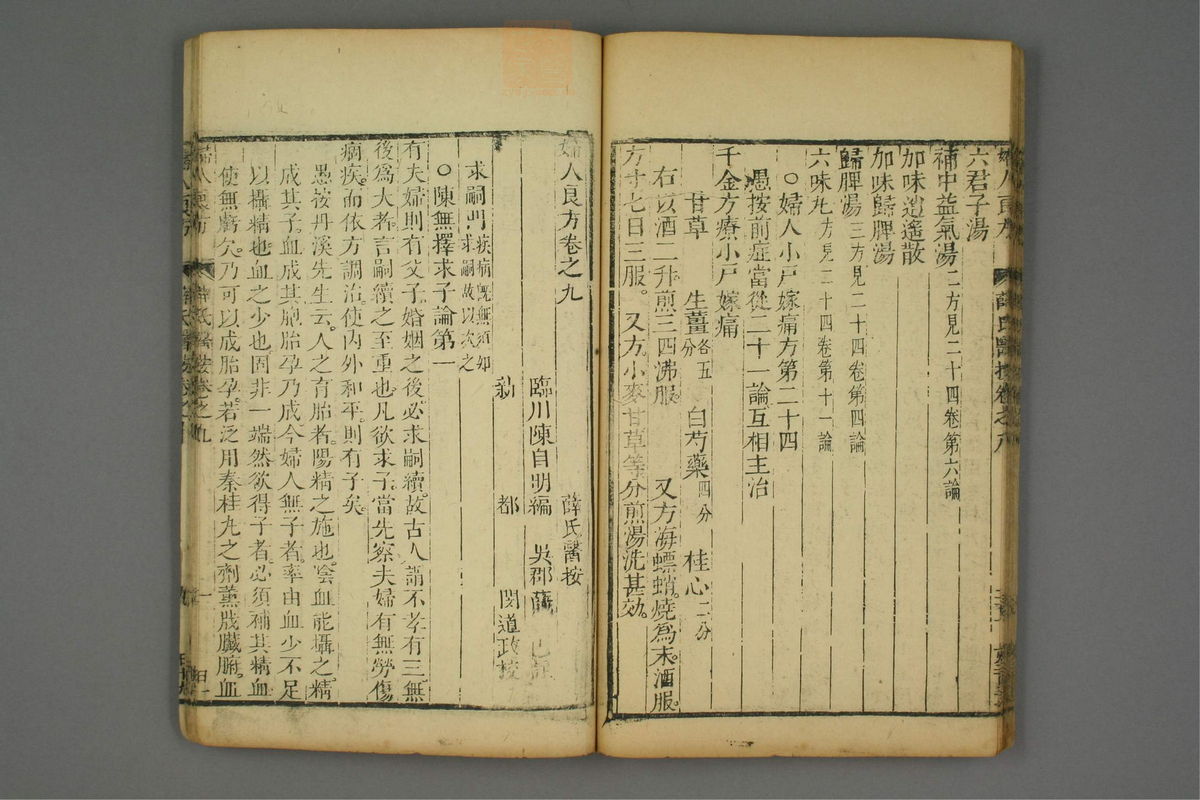 六君子湯
補中益氣湯二方見二十四卷第六論
加味逍遙散
加味歸脾湯
歸脾湯三方見二十四卷第四論
六味丸方見二十四卷第十一論
○婦人小戸嫁痛方第二十四
愚按前症當從二十一論互相主治
千金方療小戸嫁痛
甘草 生薑各五分 白芍藥四分 桂心二分
右以酒二升煎三四沸服 又方海螵蛸燒爲末酒服
方寸匕日三服。又方小麥甘草等分煎湯洗甚効。
婦人良方卷之九 薛氏醫按
臨川陳自明編 吳郡薛
新都 閔道政校
求嗣門疾病既無須知求嗣故以次之
○陳無擇求子論第一
有夫婦則有父子婚姻之後必求嗣續故古人謂不孝有三無
後爲大者言嗣續之至重也凡欲求子當先察夫婦有無勞傷
痼疾而依方調治使內外和平則有子矣
愚按丹溪先生云人之育胎者陽精之施也陰血能攝之精
成其子血成其胞胎孕乃成今婦人無子者率由血少不足
以攝精也血之少也固非一端然欲得子者必須補其精血
使無虧欠乃可以成胎孕若泛用秦桂九之劑薰戕臟腑血